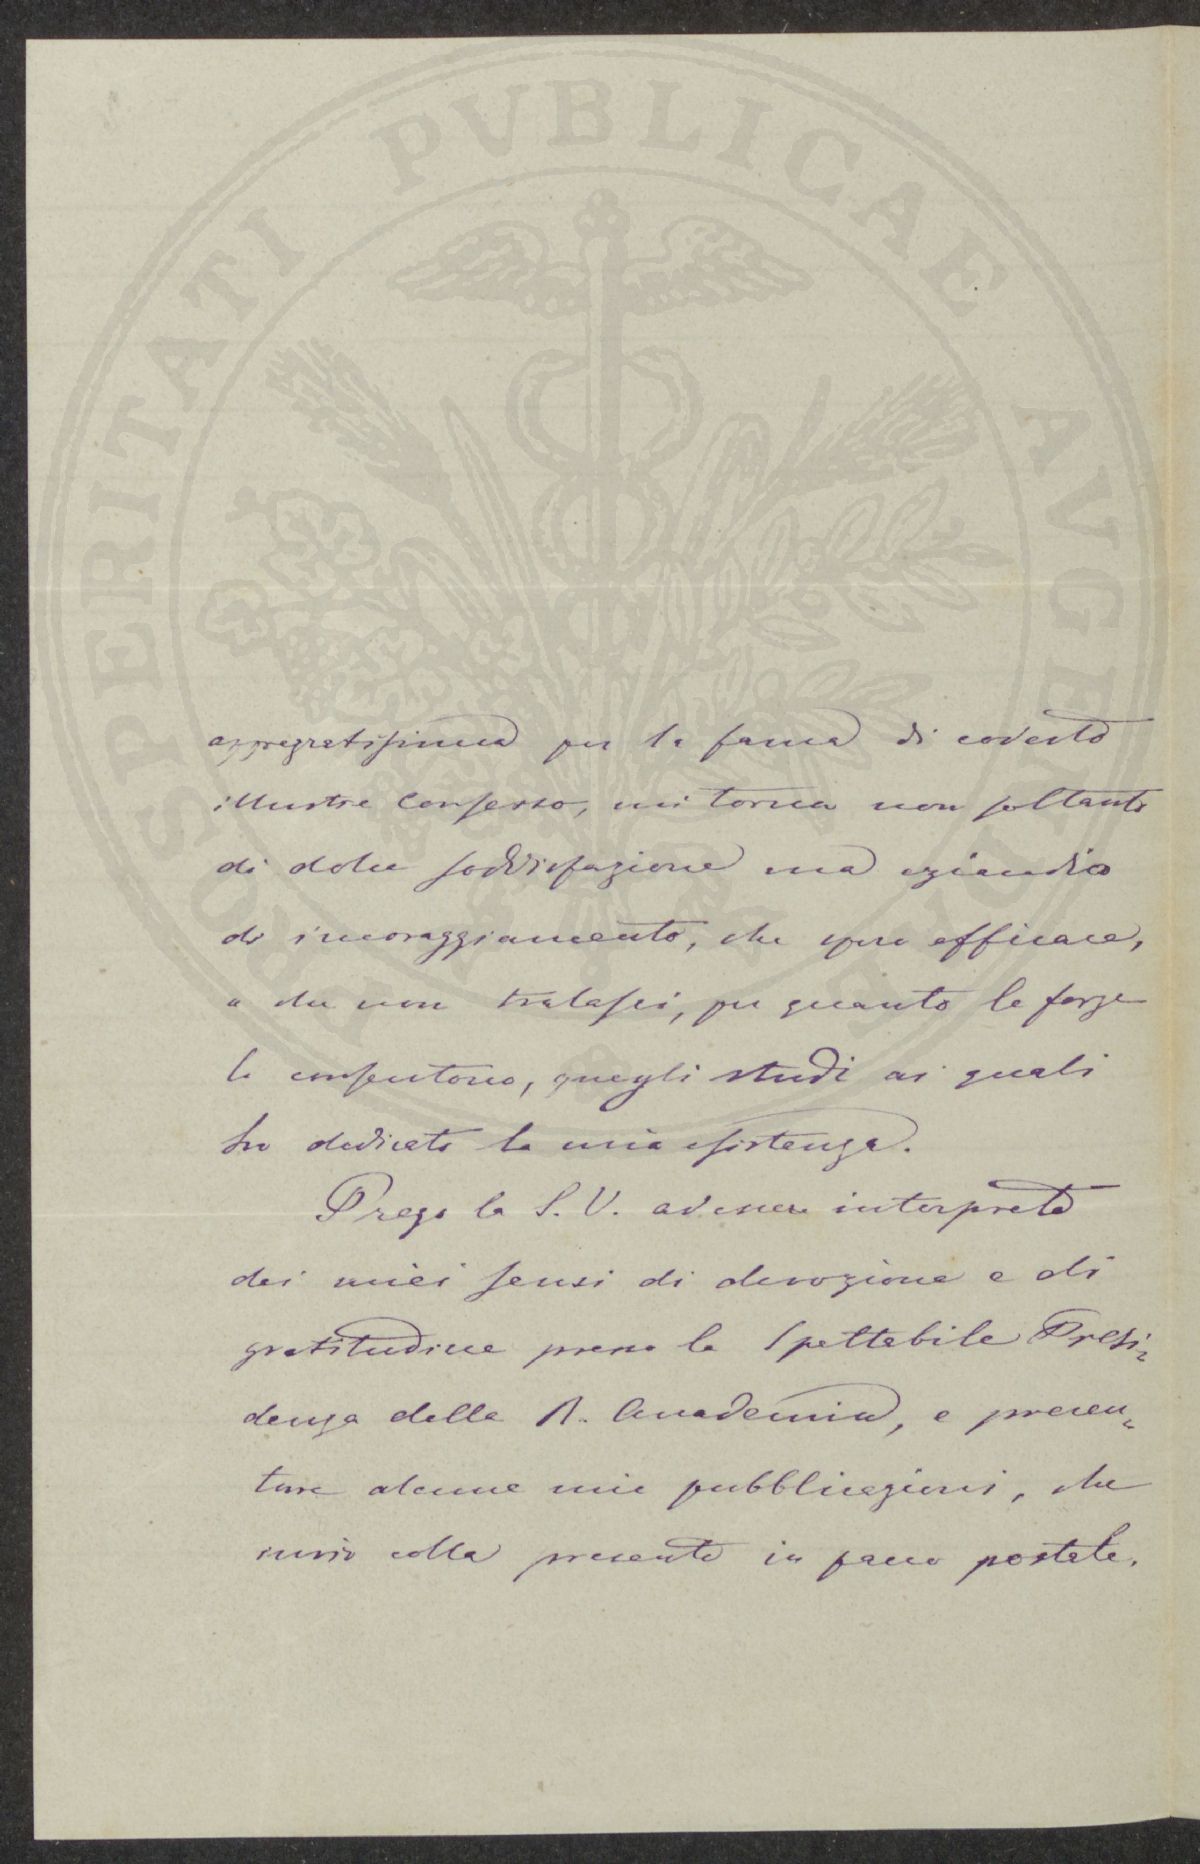 PROSPERITATI PUBLICAE AVGENDAE
aggregatissima per la fama di codesto
illustre Consesso, mi torna non soltanto
di dolce soddisfazione ma eziandio
di incoraggiamento, che spero efficace,
a che non tralasci, per quanto le forze
lo consentono, quegli studi ai quali
ho dedicato la mia esistenza.
Prego la S. V. ad essere interprete
dei miei sensi di devozione e di
gratitudine presso la Spettabile Presi=
denza della R. Accademia, e presen=
tare alcune mie pubblicazioni, che
invio colla presente in pacco postale.